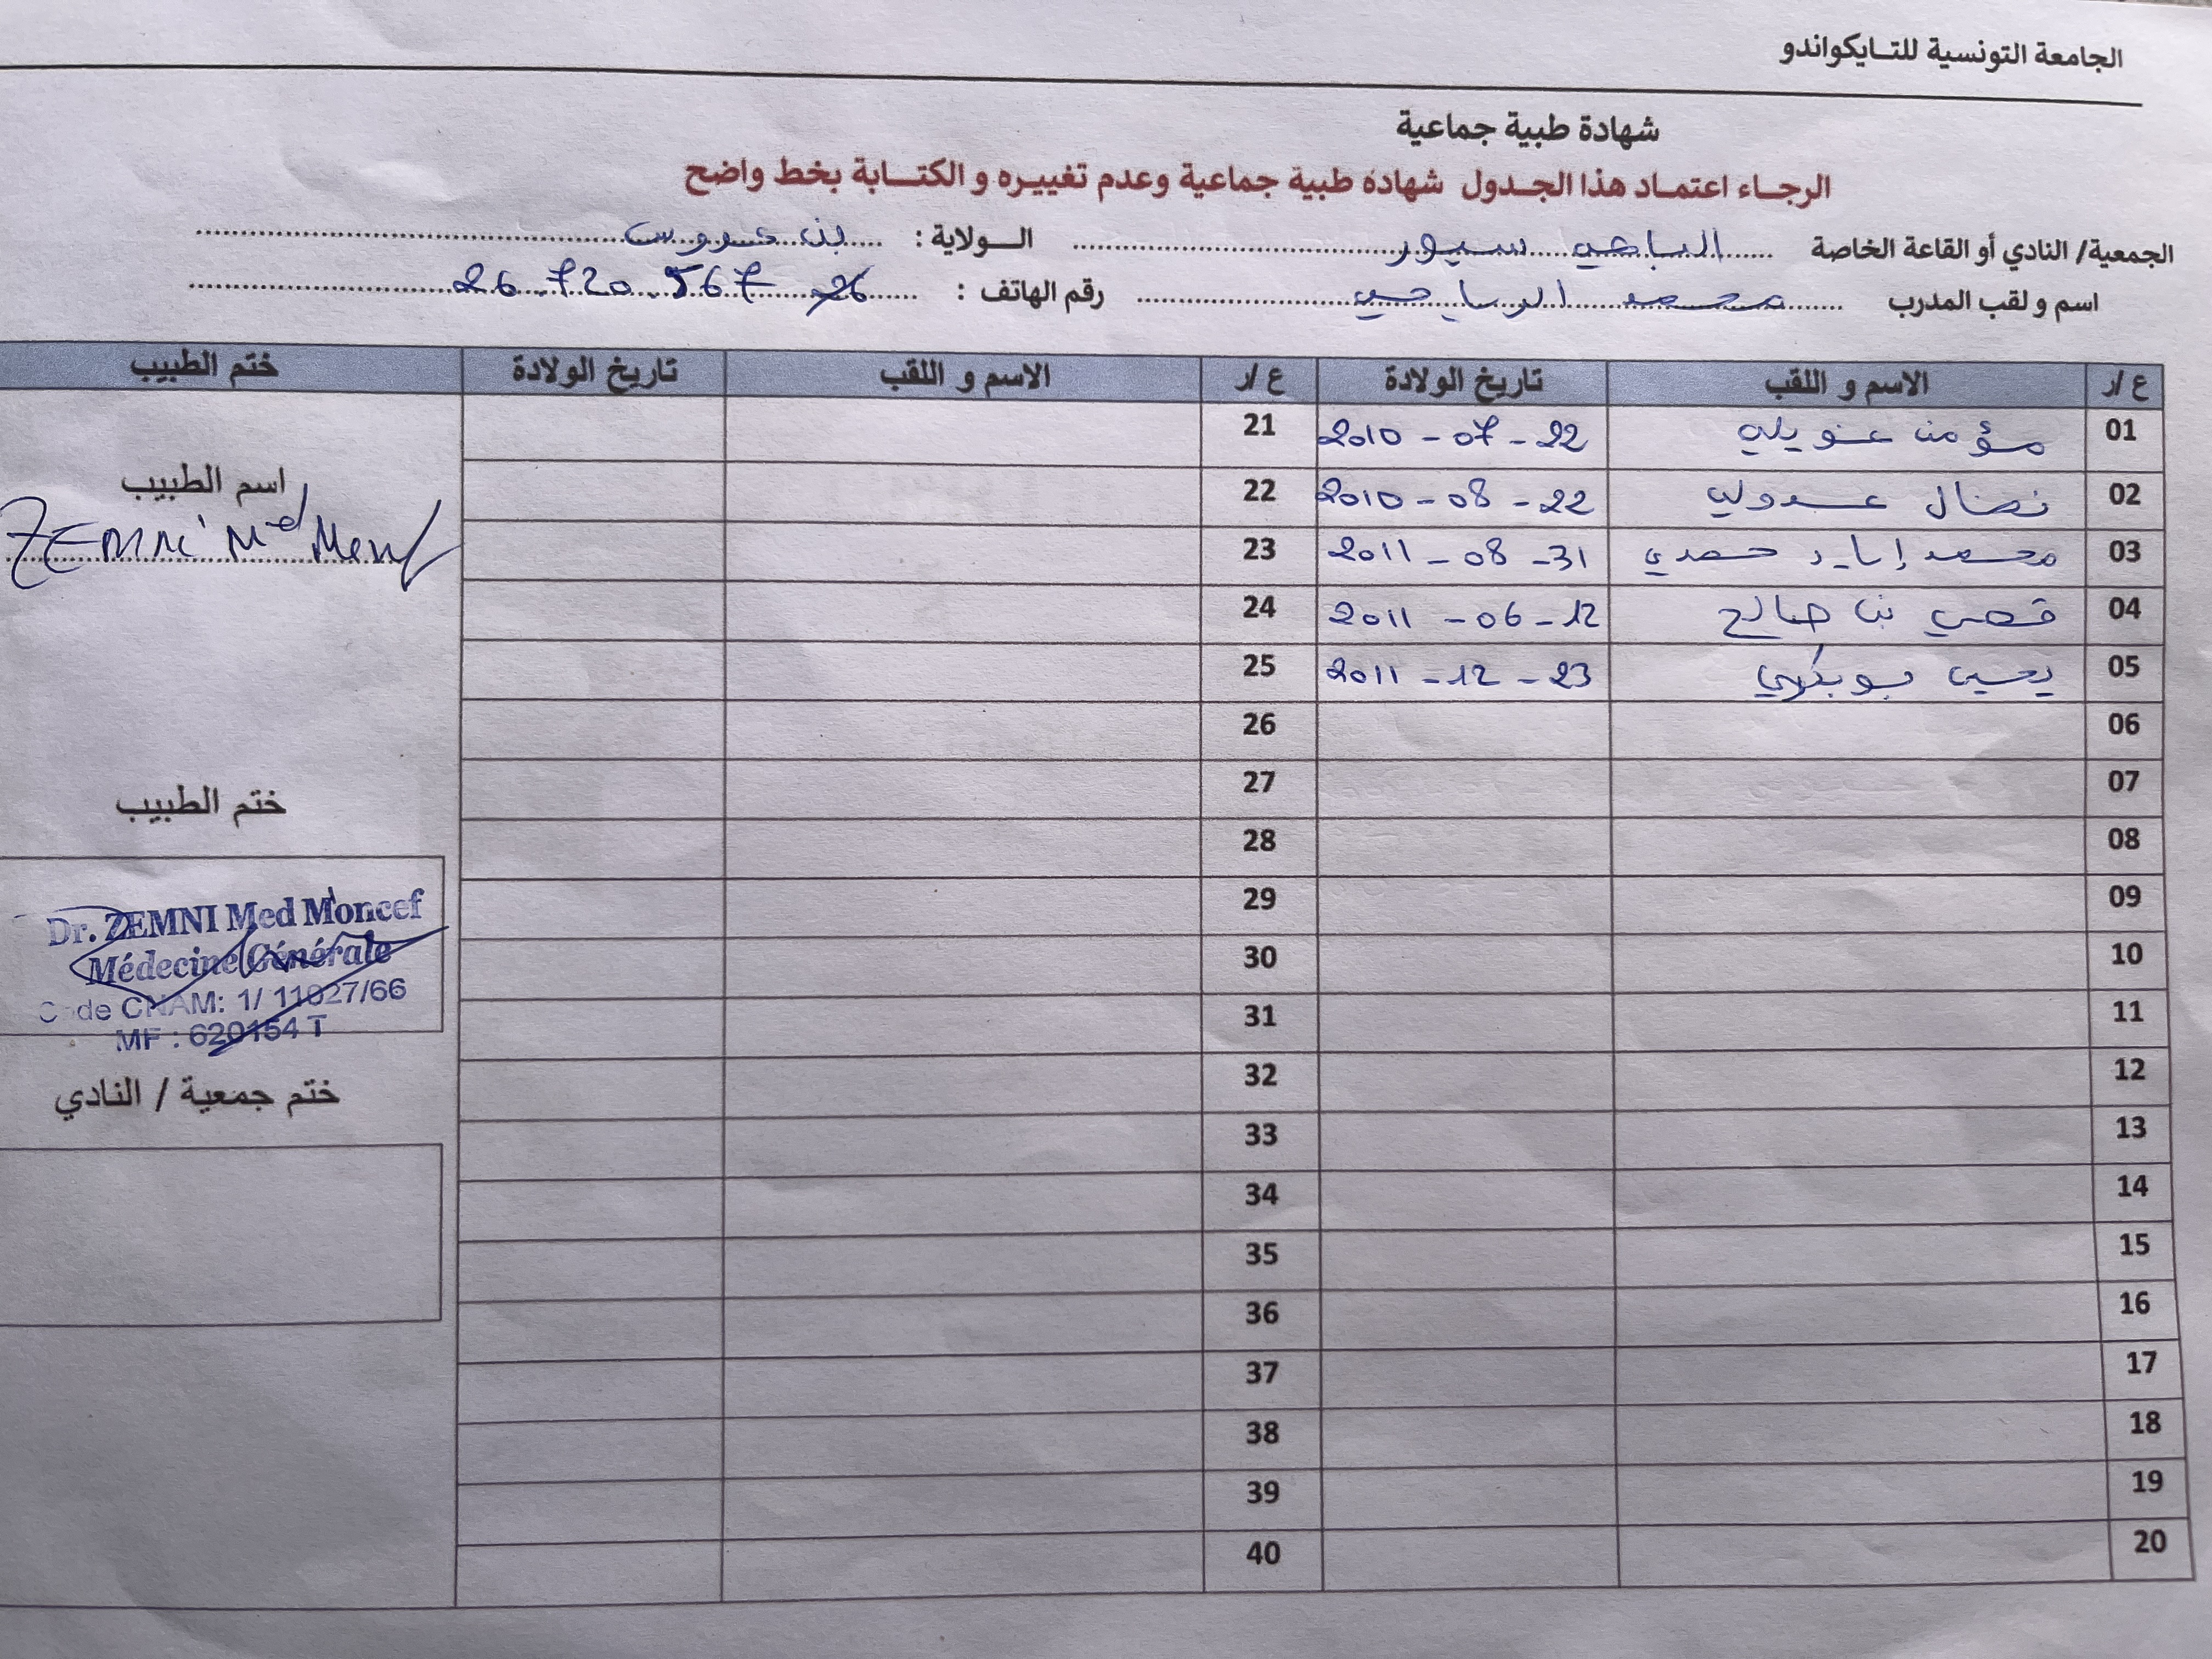 الجامعة التونسية للتـايكواندو
شهادة طبية جماعية
الرجـاء اعتمـاد هذا الجـدول شهادة طبية جماعية وعدم تغييـره و الكتـابة بخط واضح
الجمعية/ النادي أو القاعة الخاصة سبور الـولاية : بن عروس
اسم و لقب المدرب محمد الرياحي رقم الهاتف : 26.720.567
ع /ر الاسم و اللقب تاريخ الولادة ع /ر الاسم و اللقب تاريخ الولادة ختم الطبيب
01 مؤمن 22-07-2010 21
02 نضال عبدولي 22-08-2010 22
03 محمد إياد حمدي 31-08-2011 23
04 قصي بن صالح 12-06-2011 24
05 يحيى بوبكري 23-12-2011 25
06 26
07 27
08 28
09 29
10 30
11 31
12 32
13 33
14 34
15 35
16 36
17 37
18 38
19 39
20 40
اسم الطبيب
ZEMNI Med
ختم الطبيب
Dr. ZEMNI Med Moncef
Médecine Générale
Code CNAM: 1/ 11027/66
MF : 620154 T
ختم جمعية / النادي